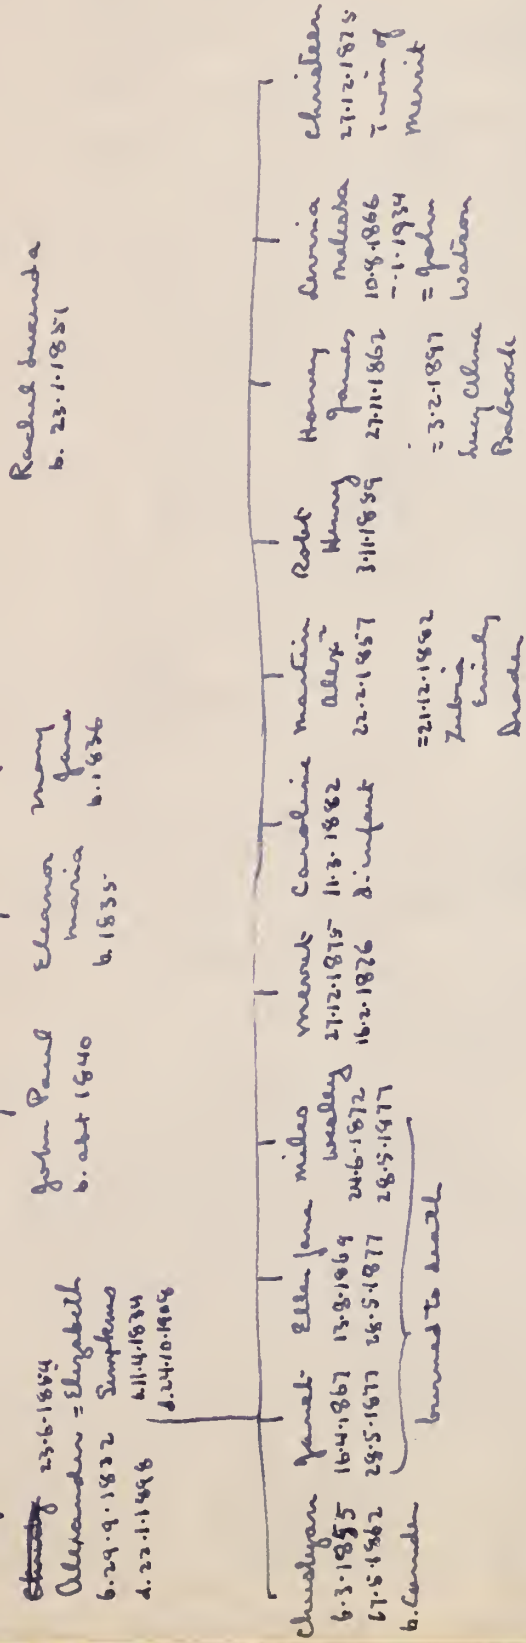 23.6.1854
Alexander = Elizabeth
b. 29.9.1832 Simpkins
d. 22.1.1898 b. 11.4.1834
d. 24.10.1908
John Paul
b. abt 1840
Eleanor
Maria
b. 1835
Mary
Jane
b. 1836
Rachel Lucinda
b. 23.1.1851
6.3.1855
17.5.1862
b. Canada
Janet
16.4.1867
28.5.1877
Ellen Jane
13.8.1869
28.5.1877
Miles
Wesley
24.6.1872
28.5.1877
burned to death
Merrit
27.12.1875
16.2.1876
Caroline
11.3.1882
d. infant
Martin
Alexr
22.2.1857
=21.12.1882
Emily
Robt
Henry
3.11.1859
Harvey
James
27.11.1862
= 3.2.1897
Lucy Alma
Babcock
Levina
Melissa
10.8.1866
–.1.1934
= John
Watson
Christeen
27.12.1875
Twin of
Merrit